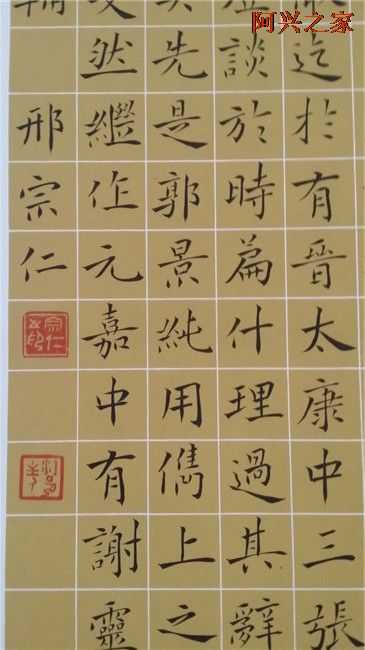 阿兴之家
迄於有晉太康中三張
談於時篇什理過其辭
先是郭景純用儁上之
然繼作元嘉中有謝靈
邢宗仁